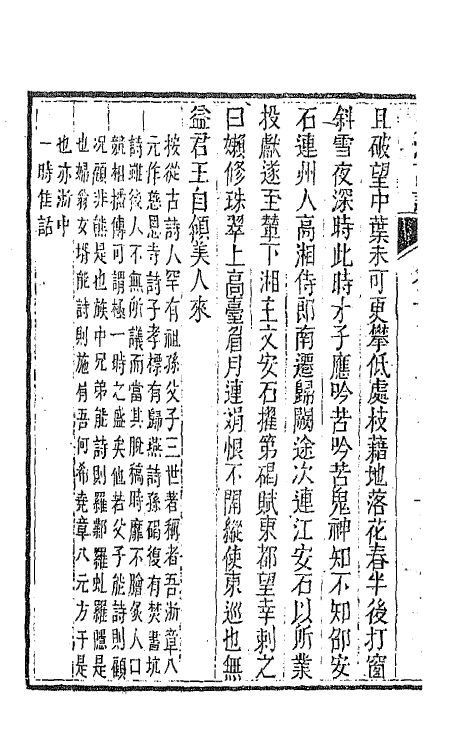 且破望中葉未可更攀低處枝藉地落花春半後打窗
斜雪夜深時此時才子應吟苦吟苦鬼神知不知邵安
石連州人高湘侍郎南遷歸闕途次連江安石以所業
投獻遂至輦下湘主文安石擢第碣賦東都望幸刺之
曰嬾修珠翠上高臺眉月連娟恨不開縱使東巡也無
益君王自領美人來
按從古詩人罕有祖孫父子三世著稱者吾浙章八
元作慈恩寺詩子孝標有歸燕詩孫碣復有焚書坑
詩雖後人不無所議而當其脫稿時靡不膾炙人口
競相播傳可謂極一時之盛矣他若父子能詩則顧
況顧非熊是也族中兄弟能詩則羅鄴羅虬羅隱是
也婦翁女壻能詩則施肩吾何希堯章八元方干是
也亦浙中
一時佳話